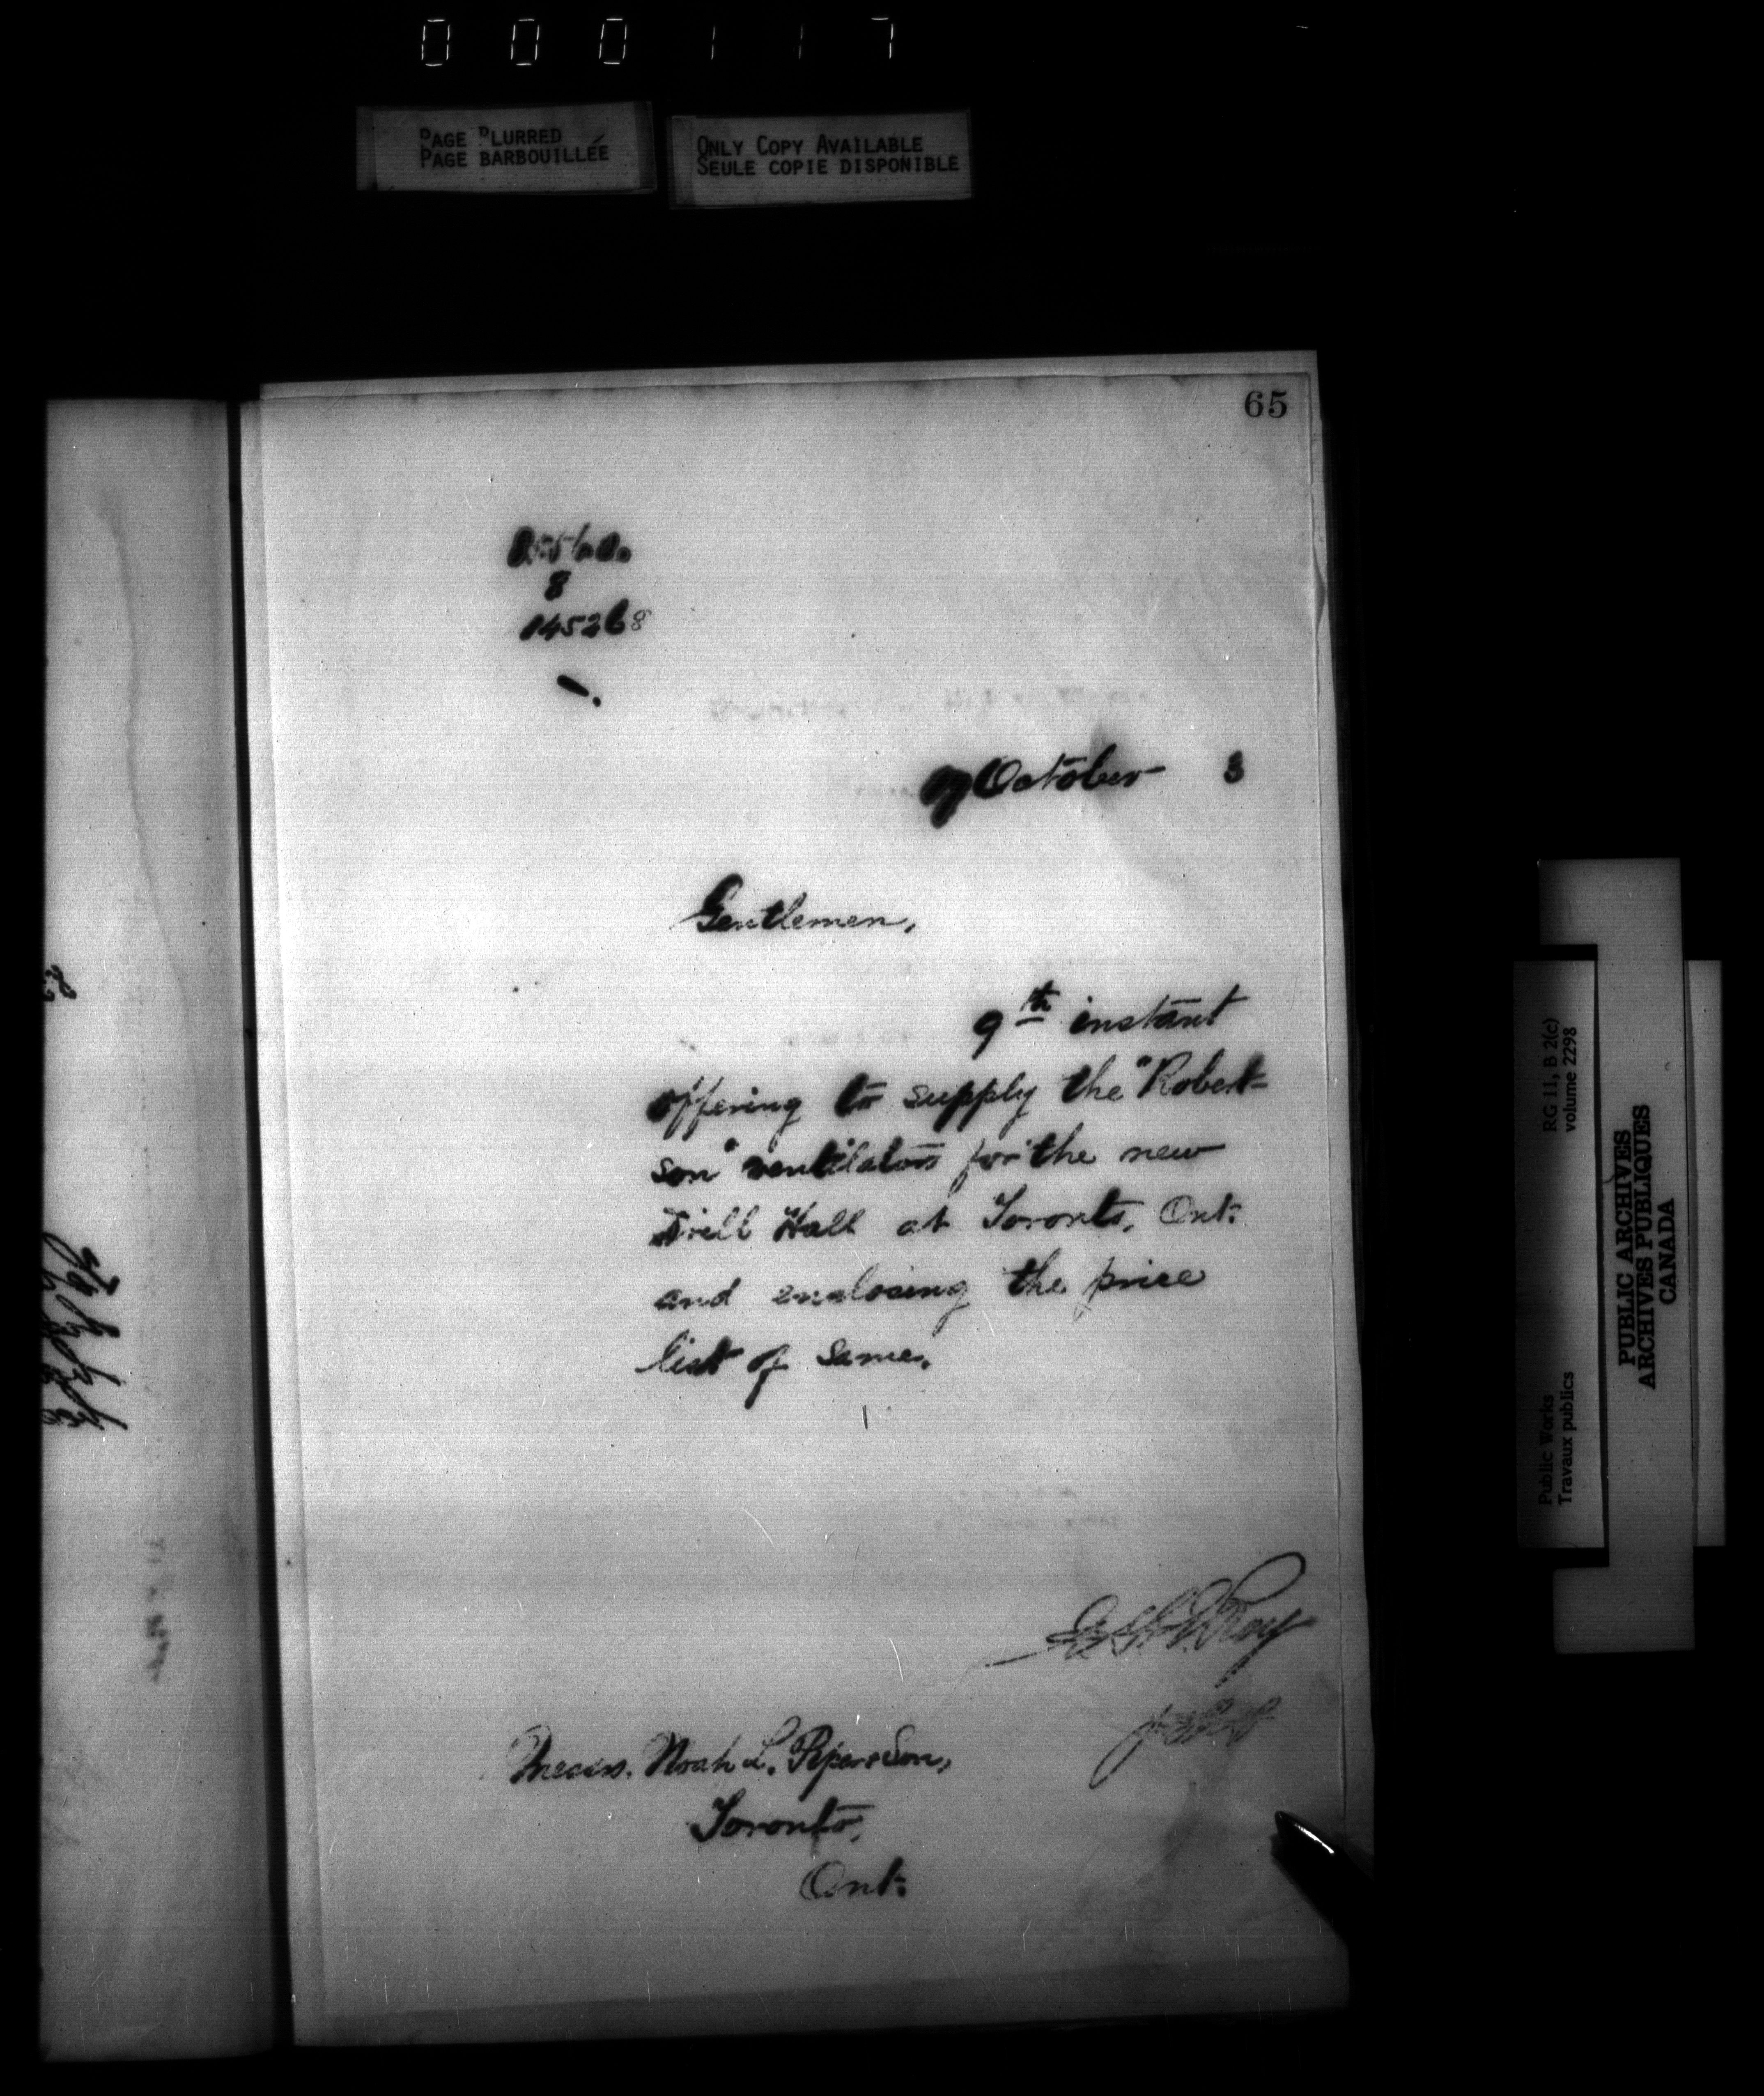 000117
PAGE BLURRED
PAGE BARBOUILLÉE
ONLY COPY AVAILABLE
SEULE COPIE DISPONIBLE
65
8
145268
October 3
Gentlemen,
9th instant
offering to supply the "Robert=
son" ventilators for the new
Drill Hall at Toronto, Ont.
and enclosing the price
list of same.
Messrs. Noah L. Piper & Son,
Toronto,
Ont.
RG 11, B 2(c)
volume 2298
Public Works
Travaux publics
PUBLIC ARCHIVES
ARCHIVES PUBLIQUES
CANADA